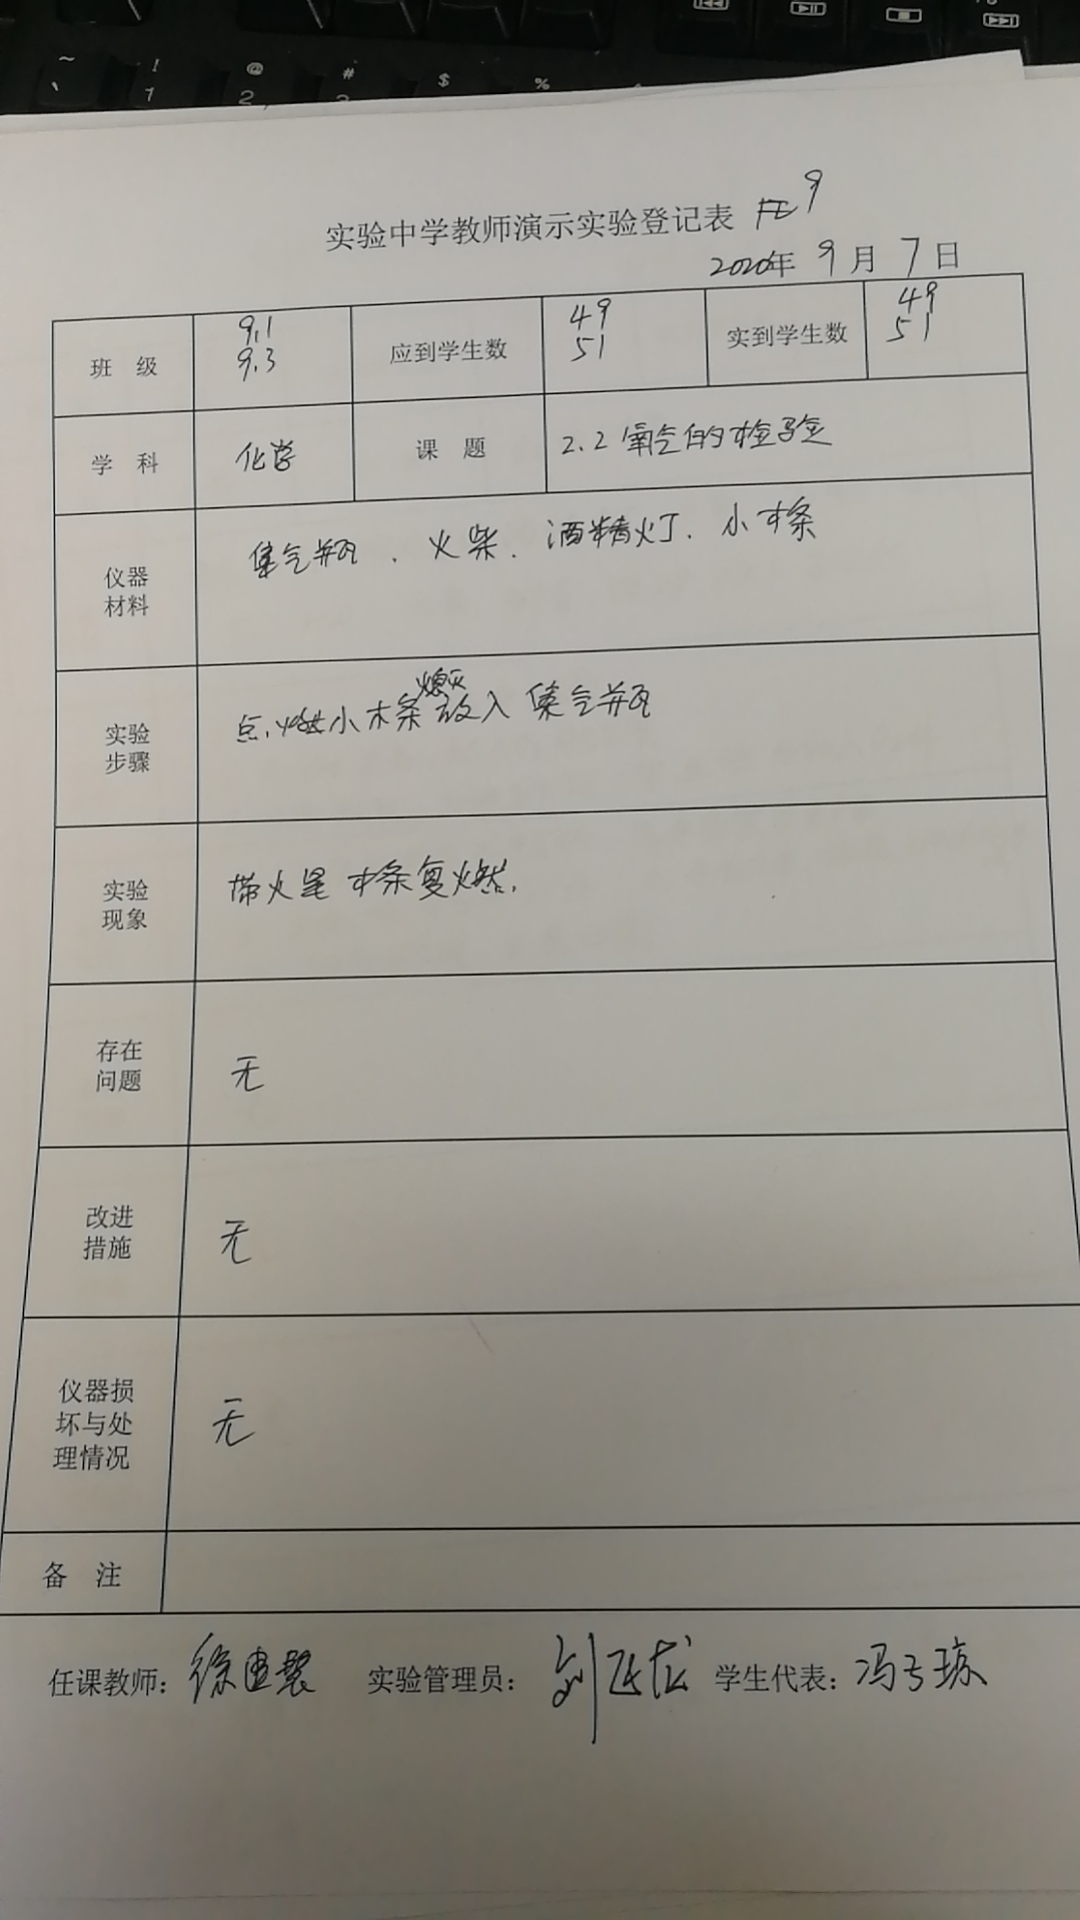 ~ ! @ # $ %
` 1 2
实验中学教师演示实验登记表 9
2020年 9 月 7 日
班 级 9.1 9.3 应到学生数 49 51 实到学生数 49 51
学 科 化学 课 题 2.2 氧气的检验
仪器材料 集气瓶 、火柴、酒精灯、小木条
熄灭
实验步骤 点燃小木条放入集气瓶
实验现象 带火星木条复燃.
存在问题 无
改进措施 无
仪器损坏与处理情况 无
备 注
任课教师: 徐 实验管理员: 刘 学生代表: 冯